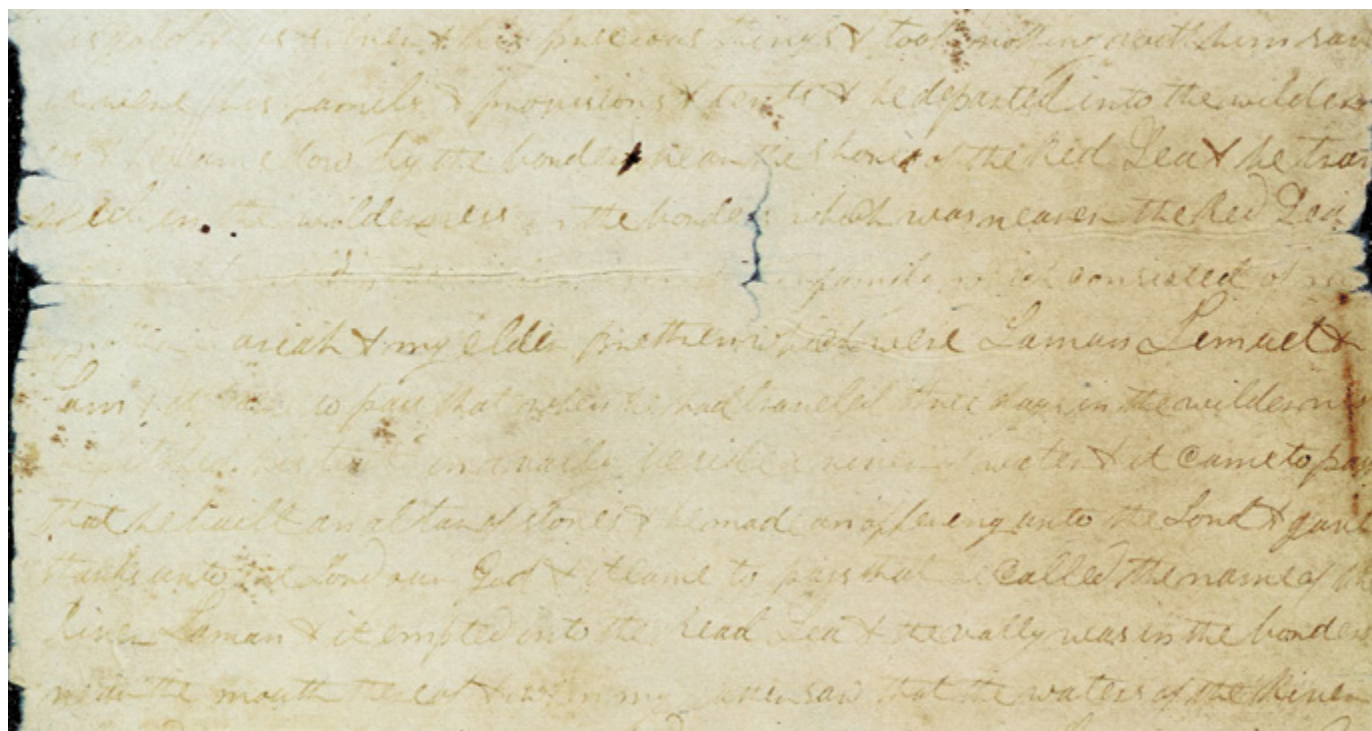 his gold & his silver & his precious things & took nothing with him save
it were his family & provisions & tents & he departed into the wilder
ness & he came down by the borders near the shore of the Red Sea & he trav
eled in the wilderness in the borders which was nearer the Red Sea
family which consisted of
ariah & my elder brethren which were Laman Lemuel &
Sam & it came to pass that when he had traveled three days in the wilderness
he pitched his tent in a vally beside a river of water & it came to pass
that he built an altar of stones & he mad an offering unto the Lord & gave
thanks unto the Lord our God & it came to pass that he called the name of the
River Laman & it empted into the Read Sea & the vally was in the borders
near the mouth thereof & when my father saw that the waters of the River